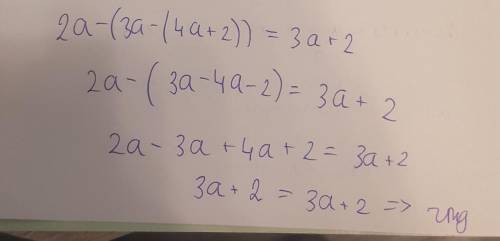 2a-(3a-(4a+2)) = 3a+2
2a-(3a-4a-2) = 3a+2
2a-3a+4a+2 = 3a+2
3a+2 = 3a+2 =>